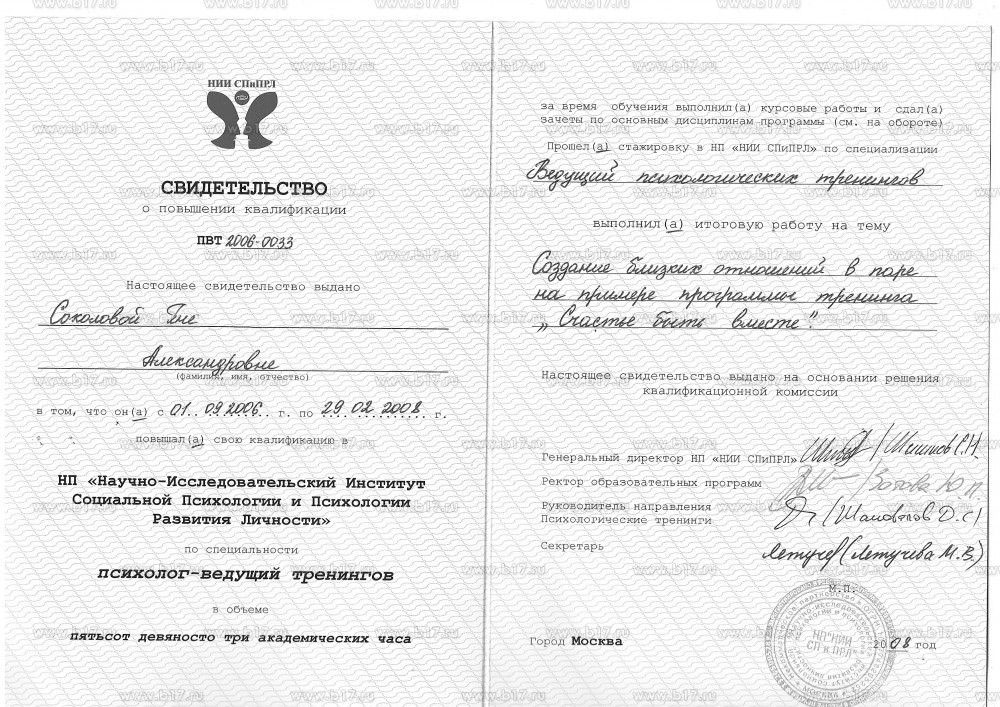 НИИ СПиПРЛ
СВИДЕТЕЛЬСТВО
о повышении квалификации
ПВТ 2006-0033
Настоящее свидетельство выдано
Соколовой Яне
Александровне
(фамилия, имя, отчество)
в том, что он(а) с 01. 09.2006 г. по 29 02 2008 г.
повышал(а) свою квалификацию в
НП «Научно-Исследовательский Институт
Социальной Психологии и Психологии
Развития Личности»
по специальности
психолог-ведущий тренингов
в объеме
пятьсот девяносто три академических часа
за время обучения выполнил(а) курсовые работы и сдал(а)
зачеты по основным дисциплинам программы (см. на обороте)
Прошел(а) стажировку в НП «НИИ СПиПРЛ» по специализации
Ведущий психологических тренингов
выполнил(а) итоговую работу на тему
Создание близких отношений в паре
на примере программы тренинга
„Счастье быть вместе".
Настоящее свидетельство выдано на основании решения
квалификационной комиссии
Генеральный директор НП «НИИ СПиПРЛ»
Ректор образовательных программ
Руководитель направления
Психологические тренинги
Секретарь (Летучева М.В.)
М.П.
НП"НИИ
СП и ПРЛ"
Город Москва
2008 год
www.b17.ru